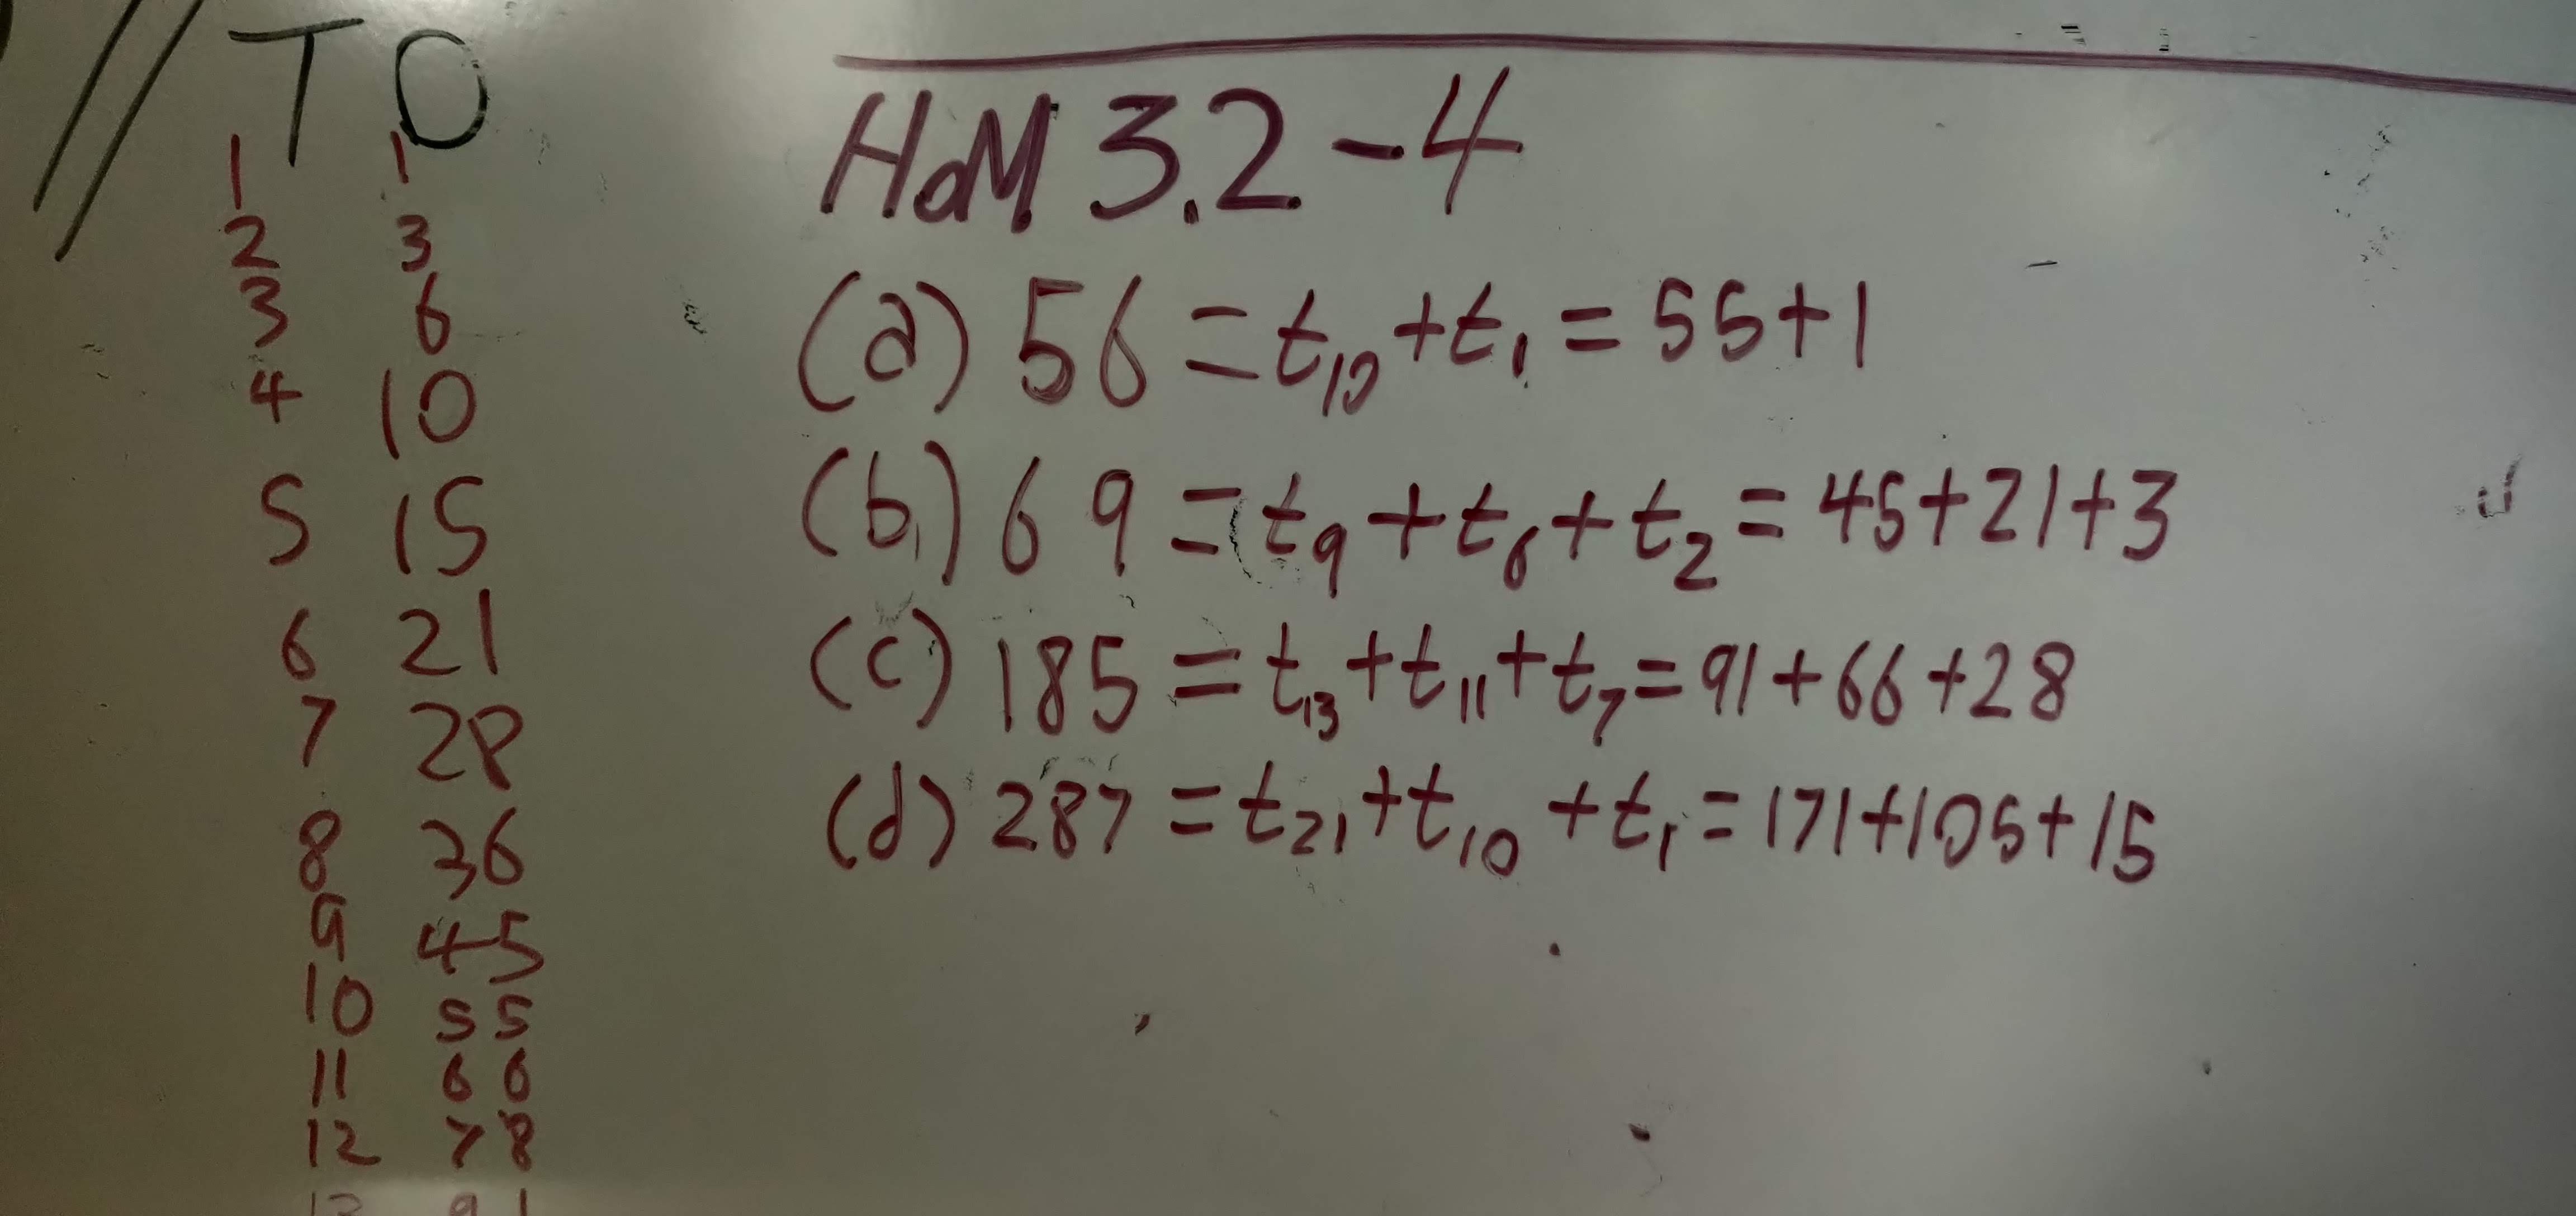 T O
1 1
2 3
3 6
4 10
5 15
6 21
7 28
8 36
9 45
10 55
11 66
12 78
13 91
HoM 3.2-4
(a) 56 = t₁₀ + t₁ = 55+1
(b) 69 = t₉ + t₆ + t₂ = 45+21+3
(c) 185 = t₁₃ + t₁₁ + t₇ = 91+66+28
(d) 287 = t₂₁ + t₁₀ + t₁ = 171+105+15